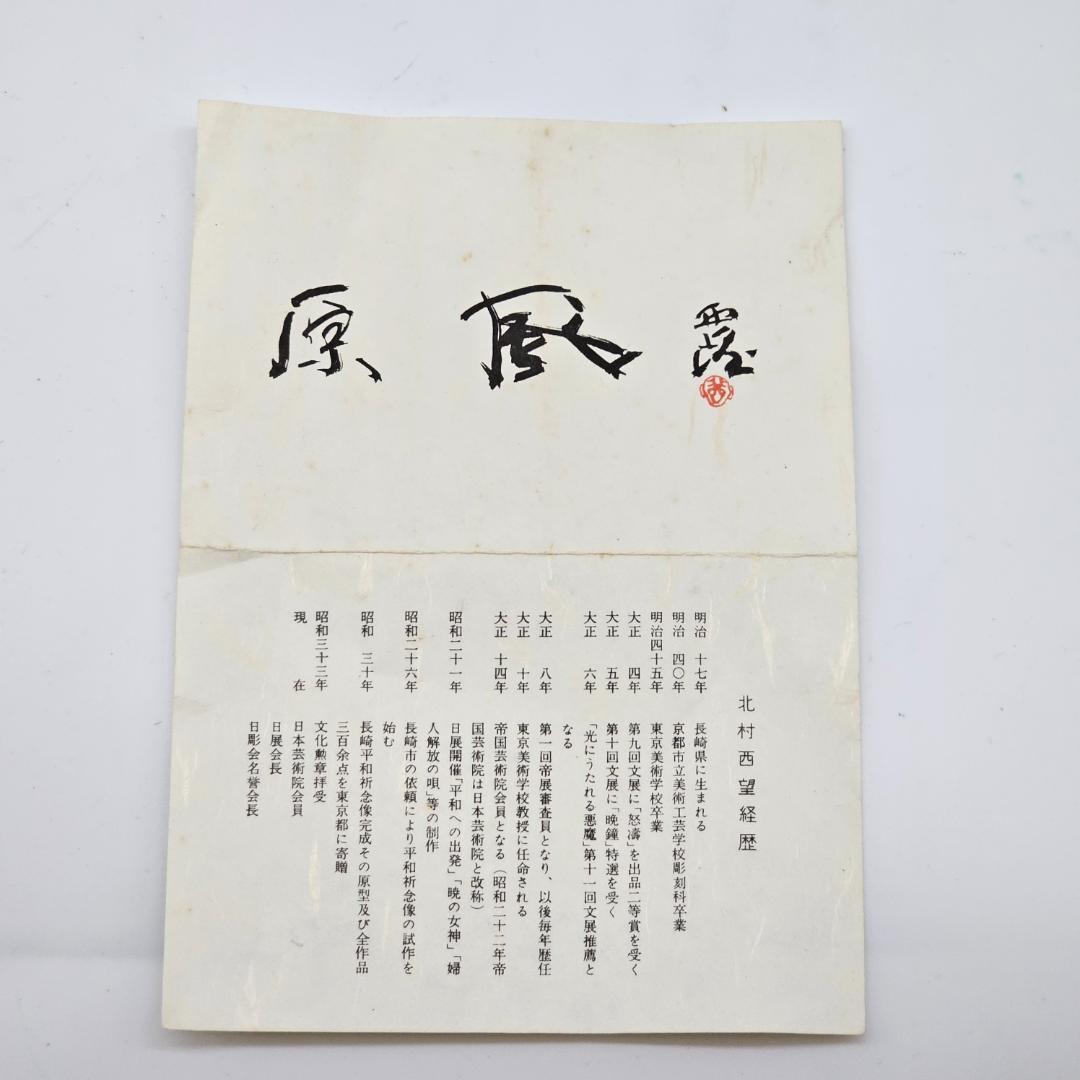 原 風 西望
北村西望経歴
明治 十七年 長崎県に生まれる
明治 四〇年 京都市立美術工芸学校彫刻科卒業
明治四十五年 東京美術学校卒業
大正 四年 第九回文展に「怒濤」を出品二等賞を受く
大正 五年 第十回文展に「晩鐘」特選を受く
大正 六年 「光にうたれる悪魔」第十一回文展推薦と
なる
大正 八年 第一回帝展審査員となり、以後毎年歴任
大正 十年 東京美術学校教授に任命される
大正 十四年 帝国芸術院会員となる（昭和二十二年帝
国芸術院は日本芸術院と改称）
昭和二十一年 日展開催「平和への出発」「暁の女神」「婦
人解放の唄」等の制作
昭和二十六年 長崎市の依頼により平和祈念像の試作を
始む
昭和 三十年 長崎平和祈念像完成その原型及び全作品
三百余点を東京都に寄贈
昭和三十三年 文化勲章拝受
現 在 日本芸術院会員
日展会長
日彫会名誉会長